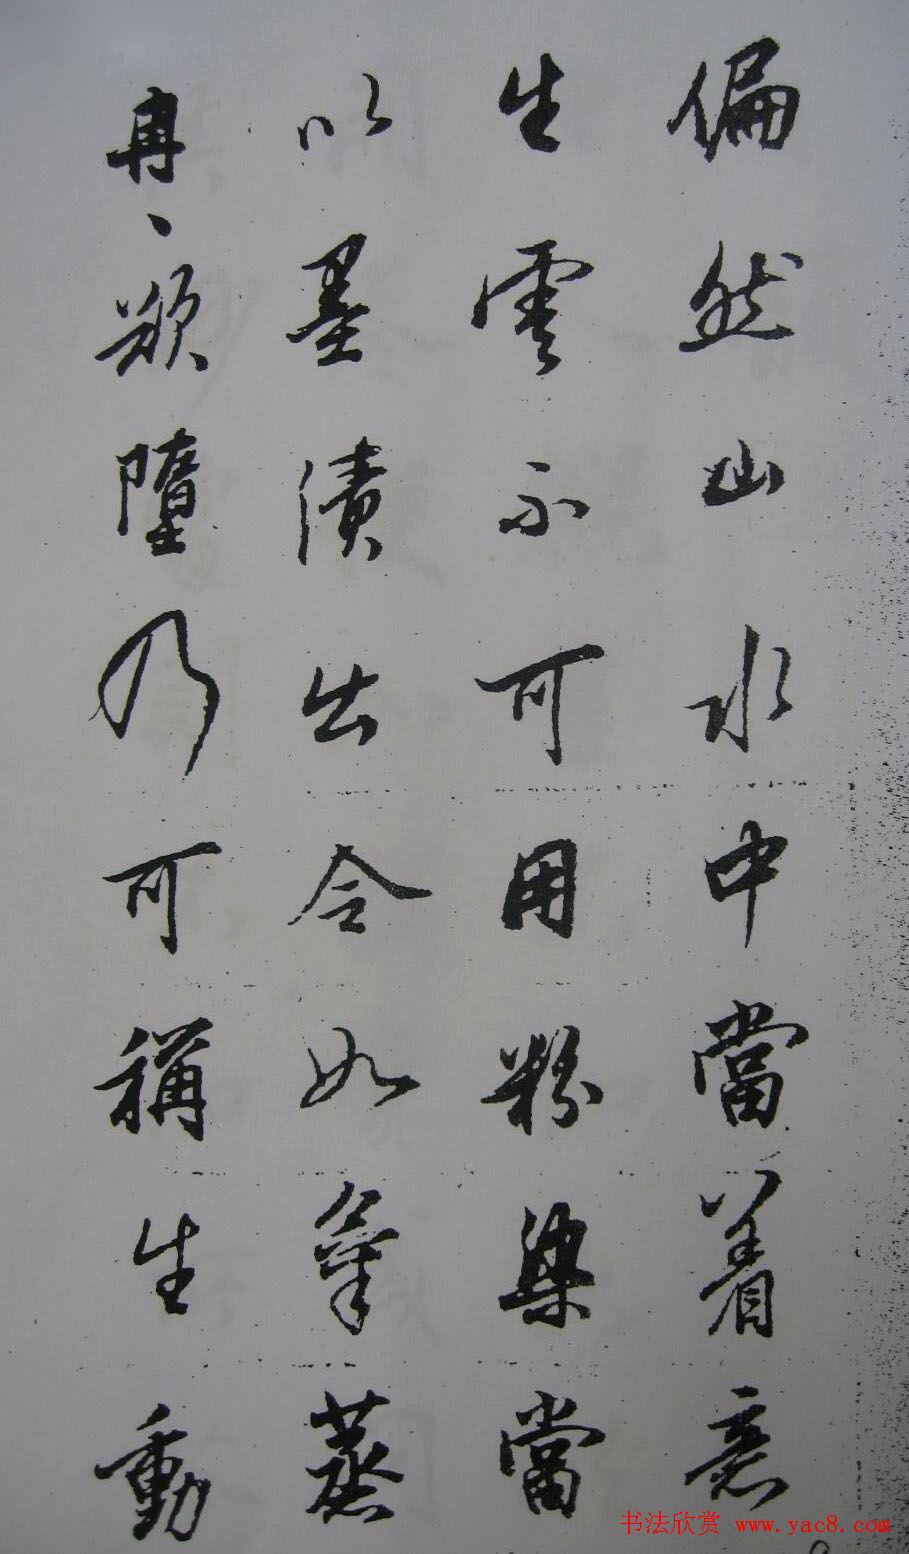 偏然山水中當着意
生雲不可用粉染當
以墨漬出令如氣蒸
冉冉欲墮乃可稱生動
书法欣赏 www.yac8.com